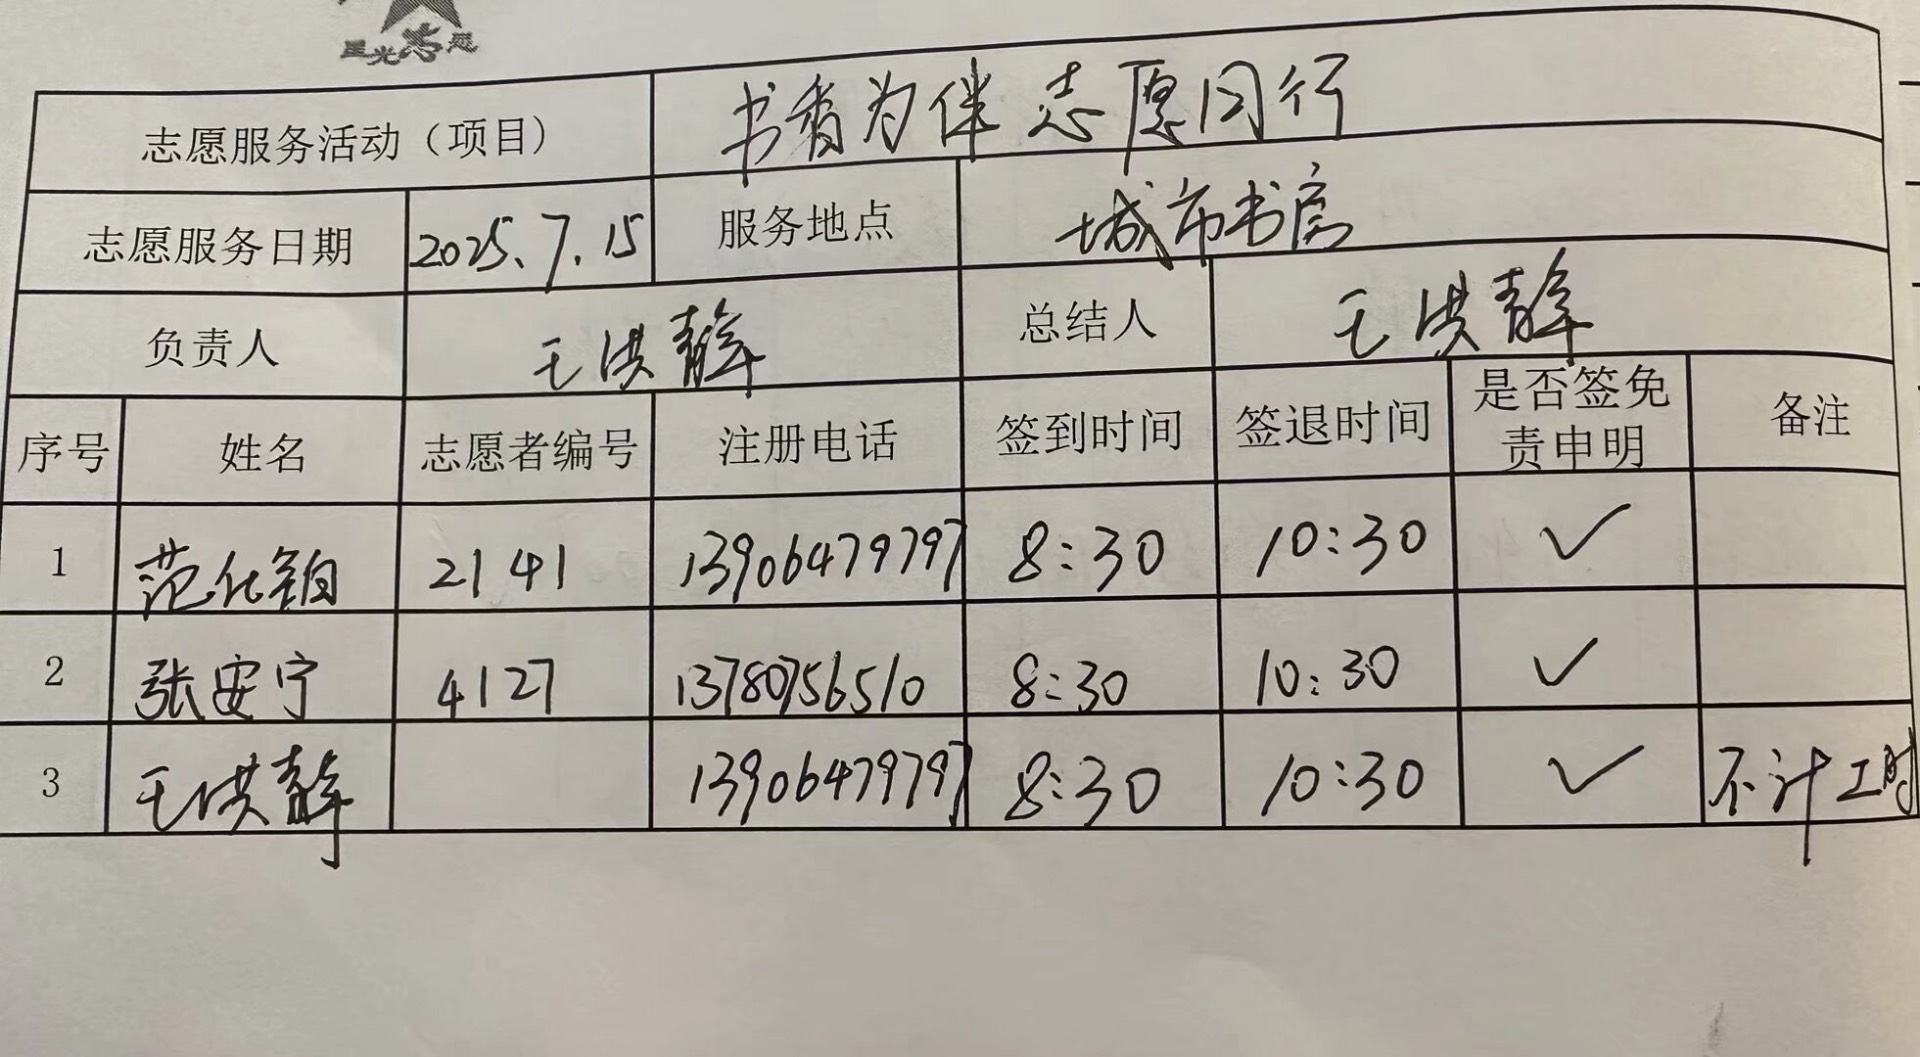 星光志愿
志愿服务活动（项目） 书香为伴 志愿同行
志愿服务日期 2025.7.15 服务地点 城市书房
负责人 王洪静 总结人 王洪静
序号 姓名 志愿者编号 注册电话 签到时间 签退时间 是否签免责申明 备注
1 范化铂 2141 13906479797 8:30 10:30 ✓
2 张安宁 4127 13780756510 8:30 10:30 ✓
3 王洪静 13906479797 8:30 10:30 ✓ 不计工时